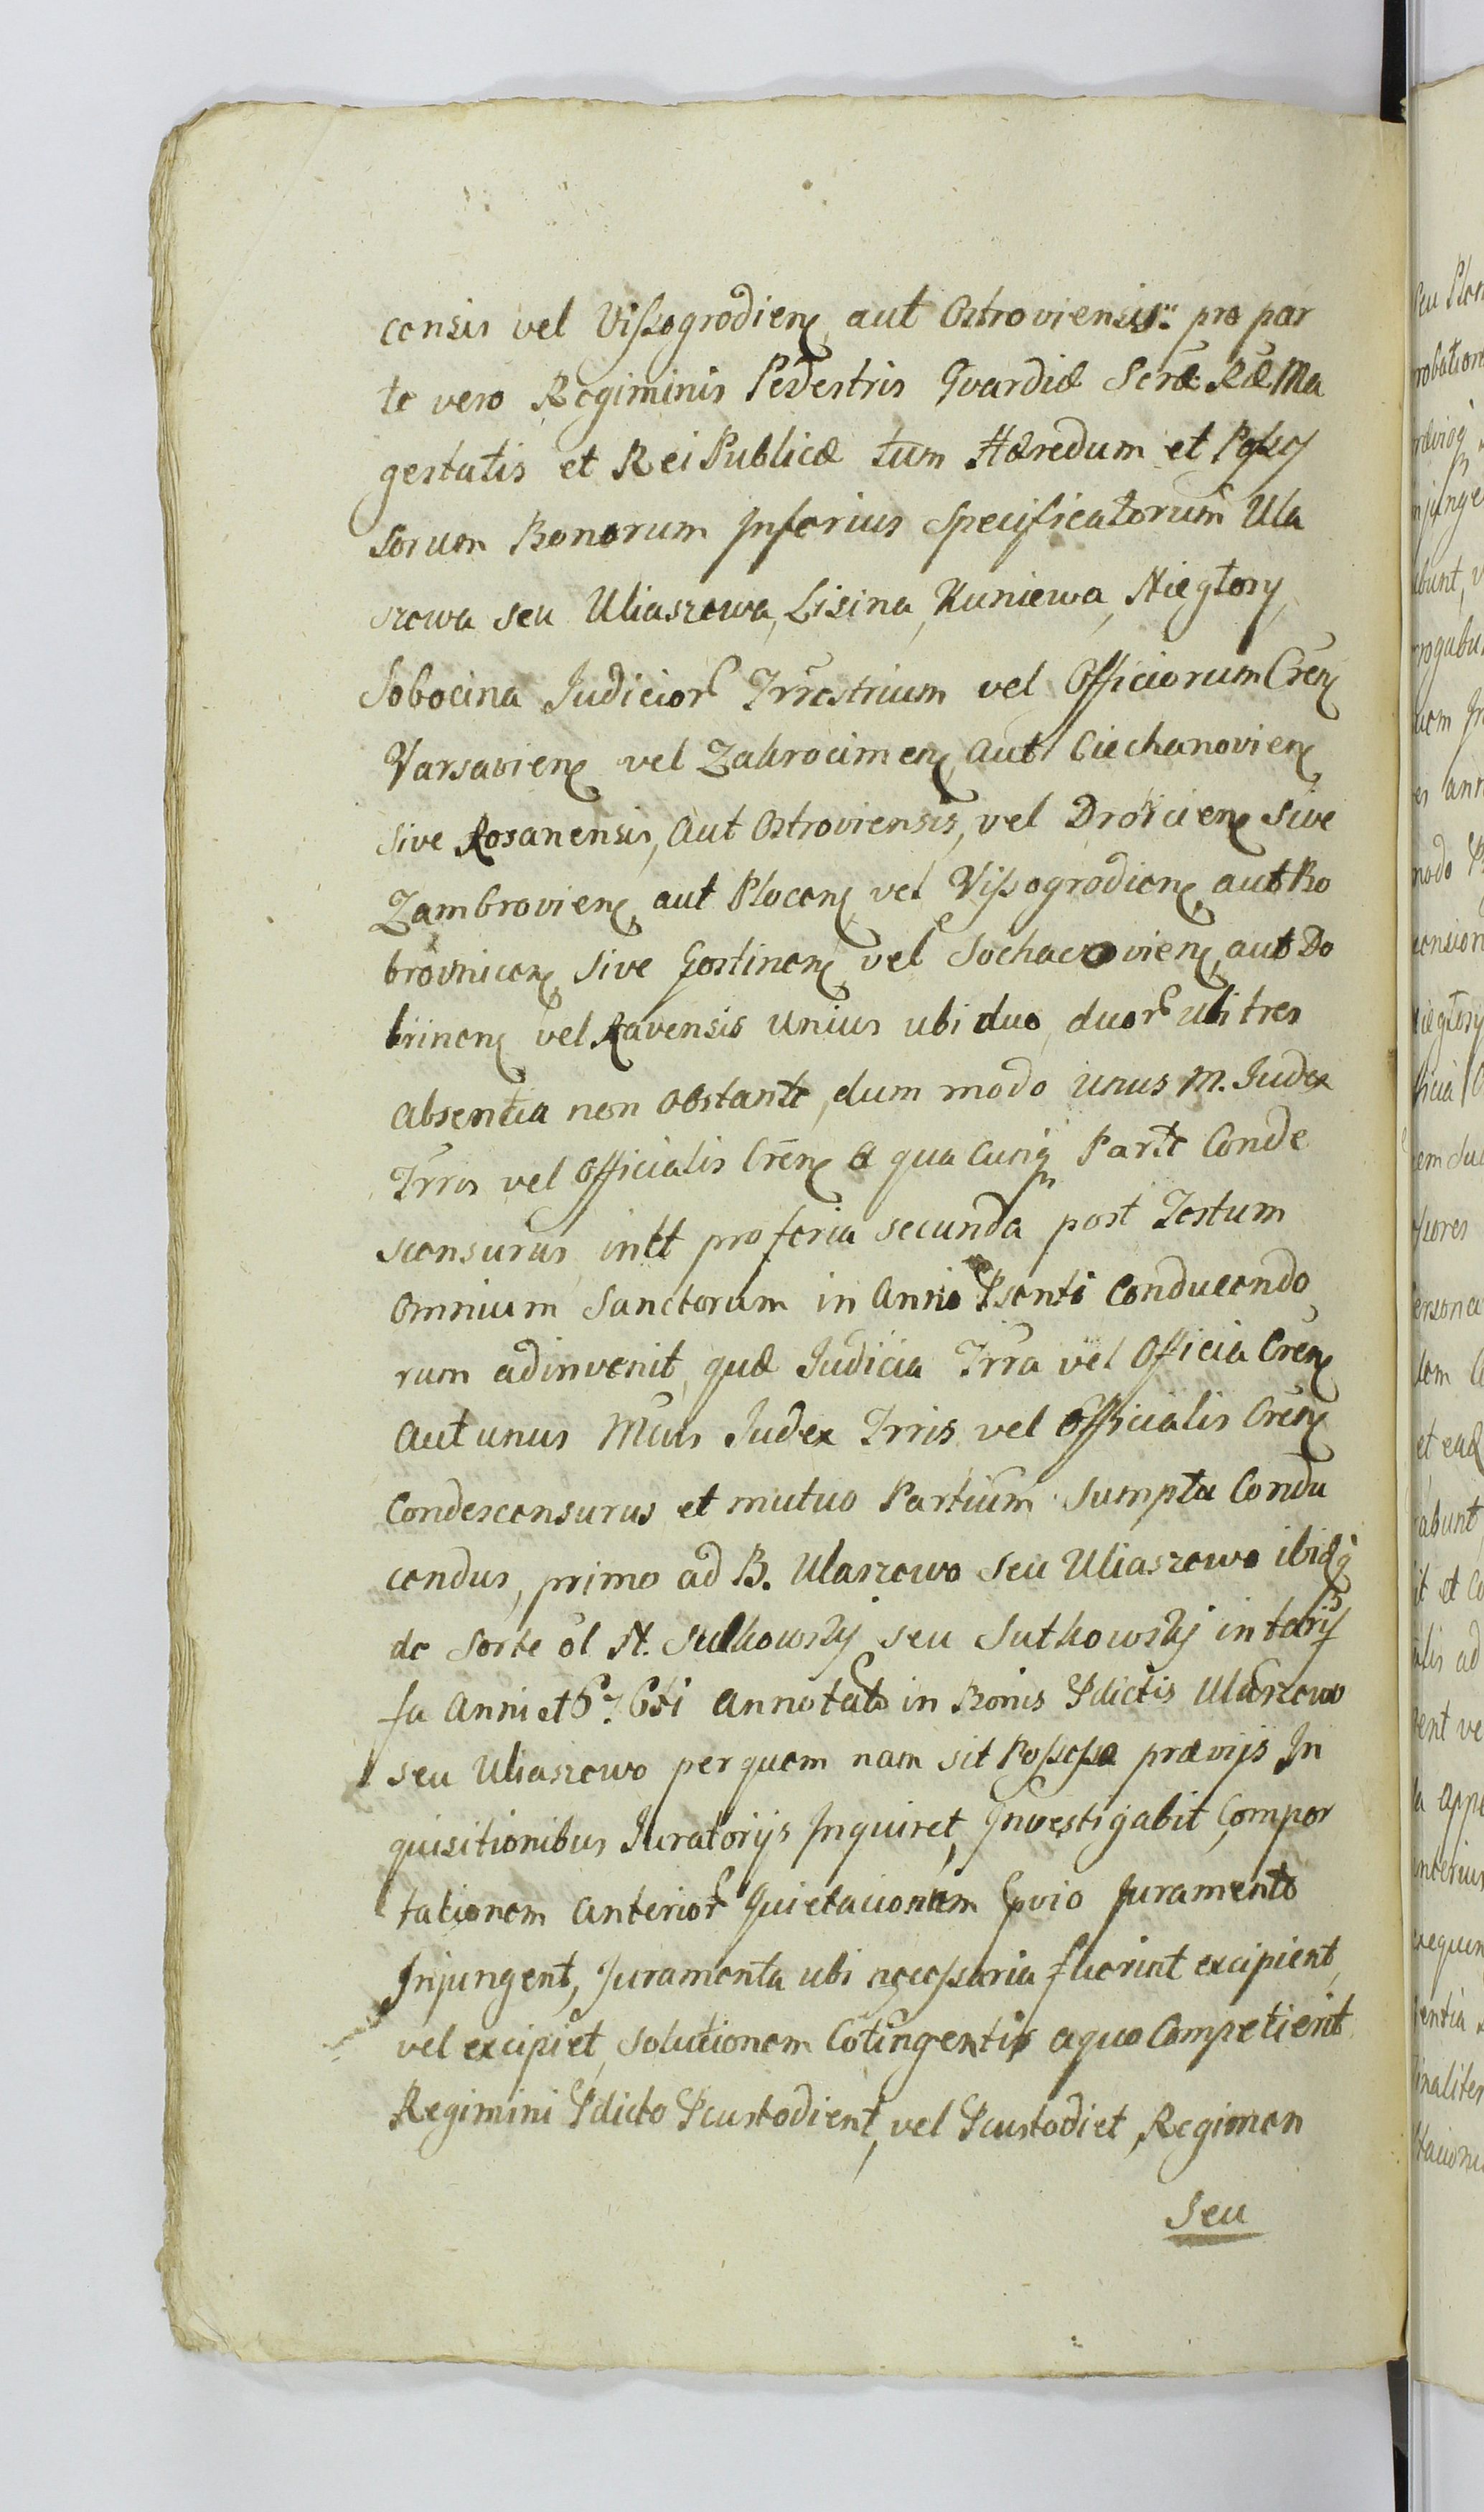 censis vel Vissogrodien aut Ostroviensis: pro par
te vero Regiminis Pedestris Gvardiæ Scræ Ræ Ma
gestatis et Rei Publicæ tum Hæredum et Posses
sorum Bonorum Inferius Specificatorum Ula
szewa seu Uliaszewa, Lisina, Kuniewa, Niegłosy
Sobocina Judicior Trrestrium vel Officiorum Cren
Varsavien vel Zakrocimen, aut Ciechanovien
sive Rosanensis, aut Ostroviensis, vel Drohicien sive
Zambrovien, aut Plocen vel Vissogrodien, aut Bo
brovnicen, sive Gostinen vel Sochaczovien, aut Do
brinen vel Ravensis unius ubi duo, duor ubi tres
absentia non obstante, dum modo unus M. Judex
Trris vel Officialis Cren a qua cunq Parte Conde
scensurus, intt pro feria secunda post Festum
Omnium Sanctorum in Anno Psenti Conducendo
rum adinvenit, quæ Judicia Trra vel Officia Cren
aut unus Mcus Judex Trris vel Officialis Cren
Condescensurus et mutuo Partium Sumpta Condu
cendus, primo ad B. Ulaszewo seu Uliaszewo ibidq
de Sorte ol N. Sulkowskij seu Sutkowskij in tarif
fa Anni 1661 annotato in Bonis Pdictis Ulaszewo
seu Uliaszewo per quem nam sit Possessa prævijs In
quisitionibus Juratorijs Inquiret, Investigabit, Compor
tationem anterior Quietacionum pvio Juramento
Injungent, Juramenta ubi necessaria fuerint excipient,
vel excipiet, solutionem Cotingentis aquo Competierit
Regimini Pdicto Pcustodient, vel Pcustodiet, Regimen
Seu